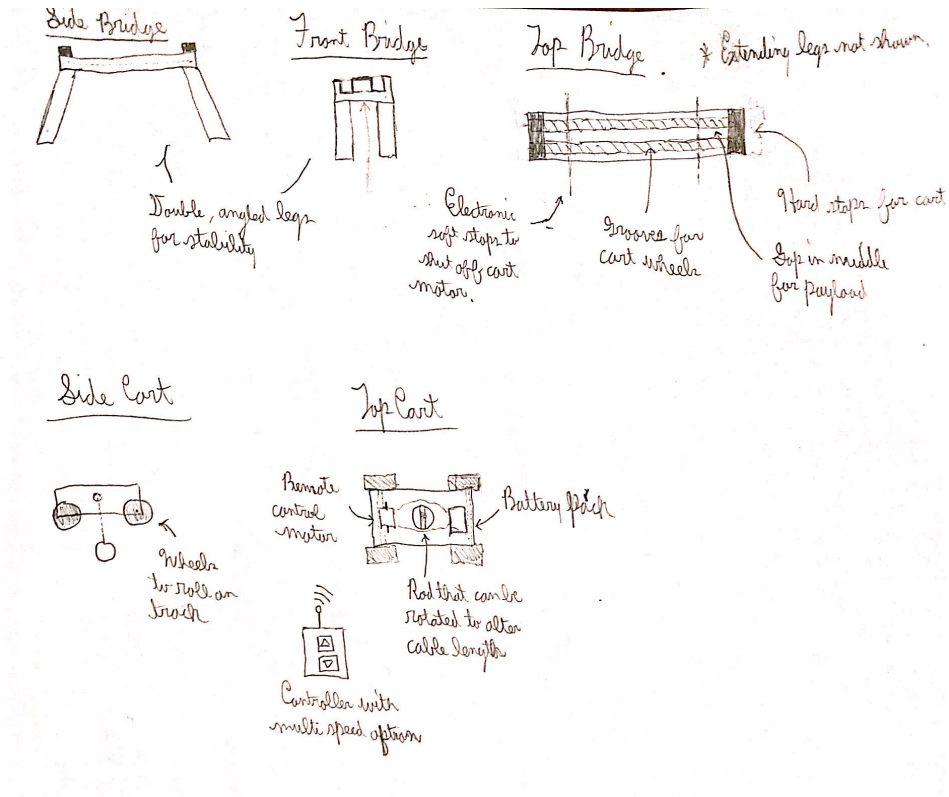 Side Bridge
Front Bridge
Top Bridge.
* Extending legs not shown.
Double, angled legs
for stability
Electronic
soft stops to
shut off cart
motor.
Grooves for
cart wheels
Hard stops for cart
Gap in middle
for payload
Side Cart
Top Cart
Wheels
to roll on
track
Remote
control
motor
Battery pack
Rod that can be
rotated to alter
cable length
Controller with
multi speed option